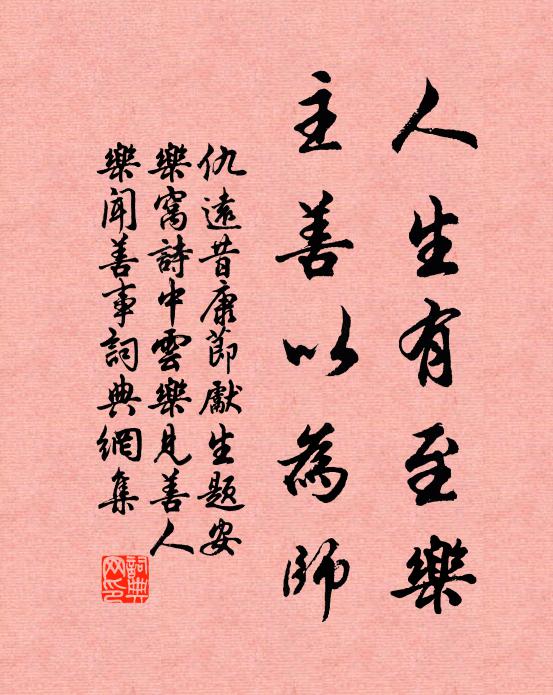 人生有至樂
主善以為師
仇遠昔康節獻生題安
樂窩詩中雲樂見善人
樂聞善事詞典網集
詞典网印